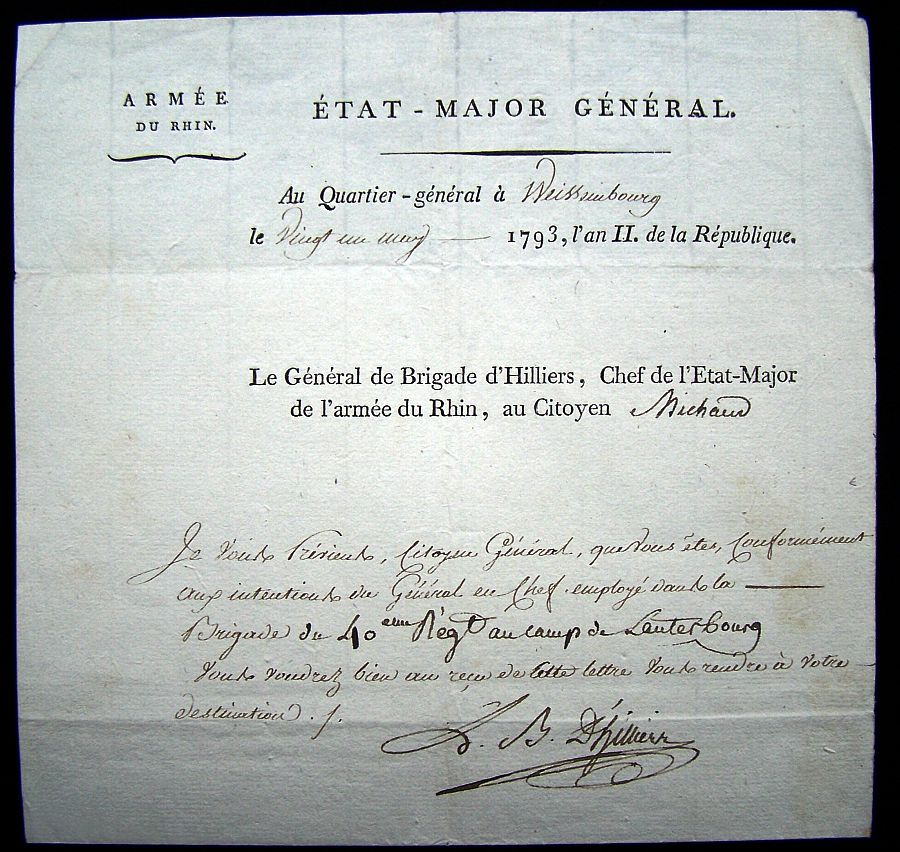 ARMÉE
DU RHIN.
ÉTAT - MAJOR GÉNÉRAL.
Au Quartier-général à Weissembourg
le Vingt un may — 1793, l'an II. de la République.
Le Général de Brigade d'Hilliers, Chef de l'Etat-Major
de l'armée du Rhin, au Citoyen Michaud
Je vous Préviens, Citoyen Général, que vous êtes, Conformément
aux intentions du Général en Chef employé dans la —
Brigade du 40eme Régt au camp de Lauterbourg
Vous voudrez bien au reçu de cette lettre vous rendre à votre
destination ./.
L. B. D'hilliers